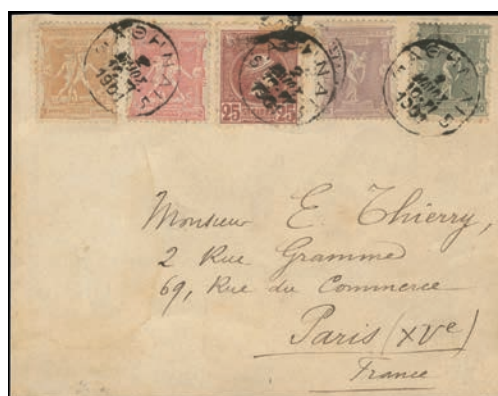 ΑΘΗΝΑΙΣ
1901
25 25
ΑΘΗΝΑΙΣ
1901
Monsieur E. Thierry,
2 Rue Gramme
69, Rue du Commerce
Paris (XVe)
France